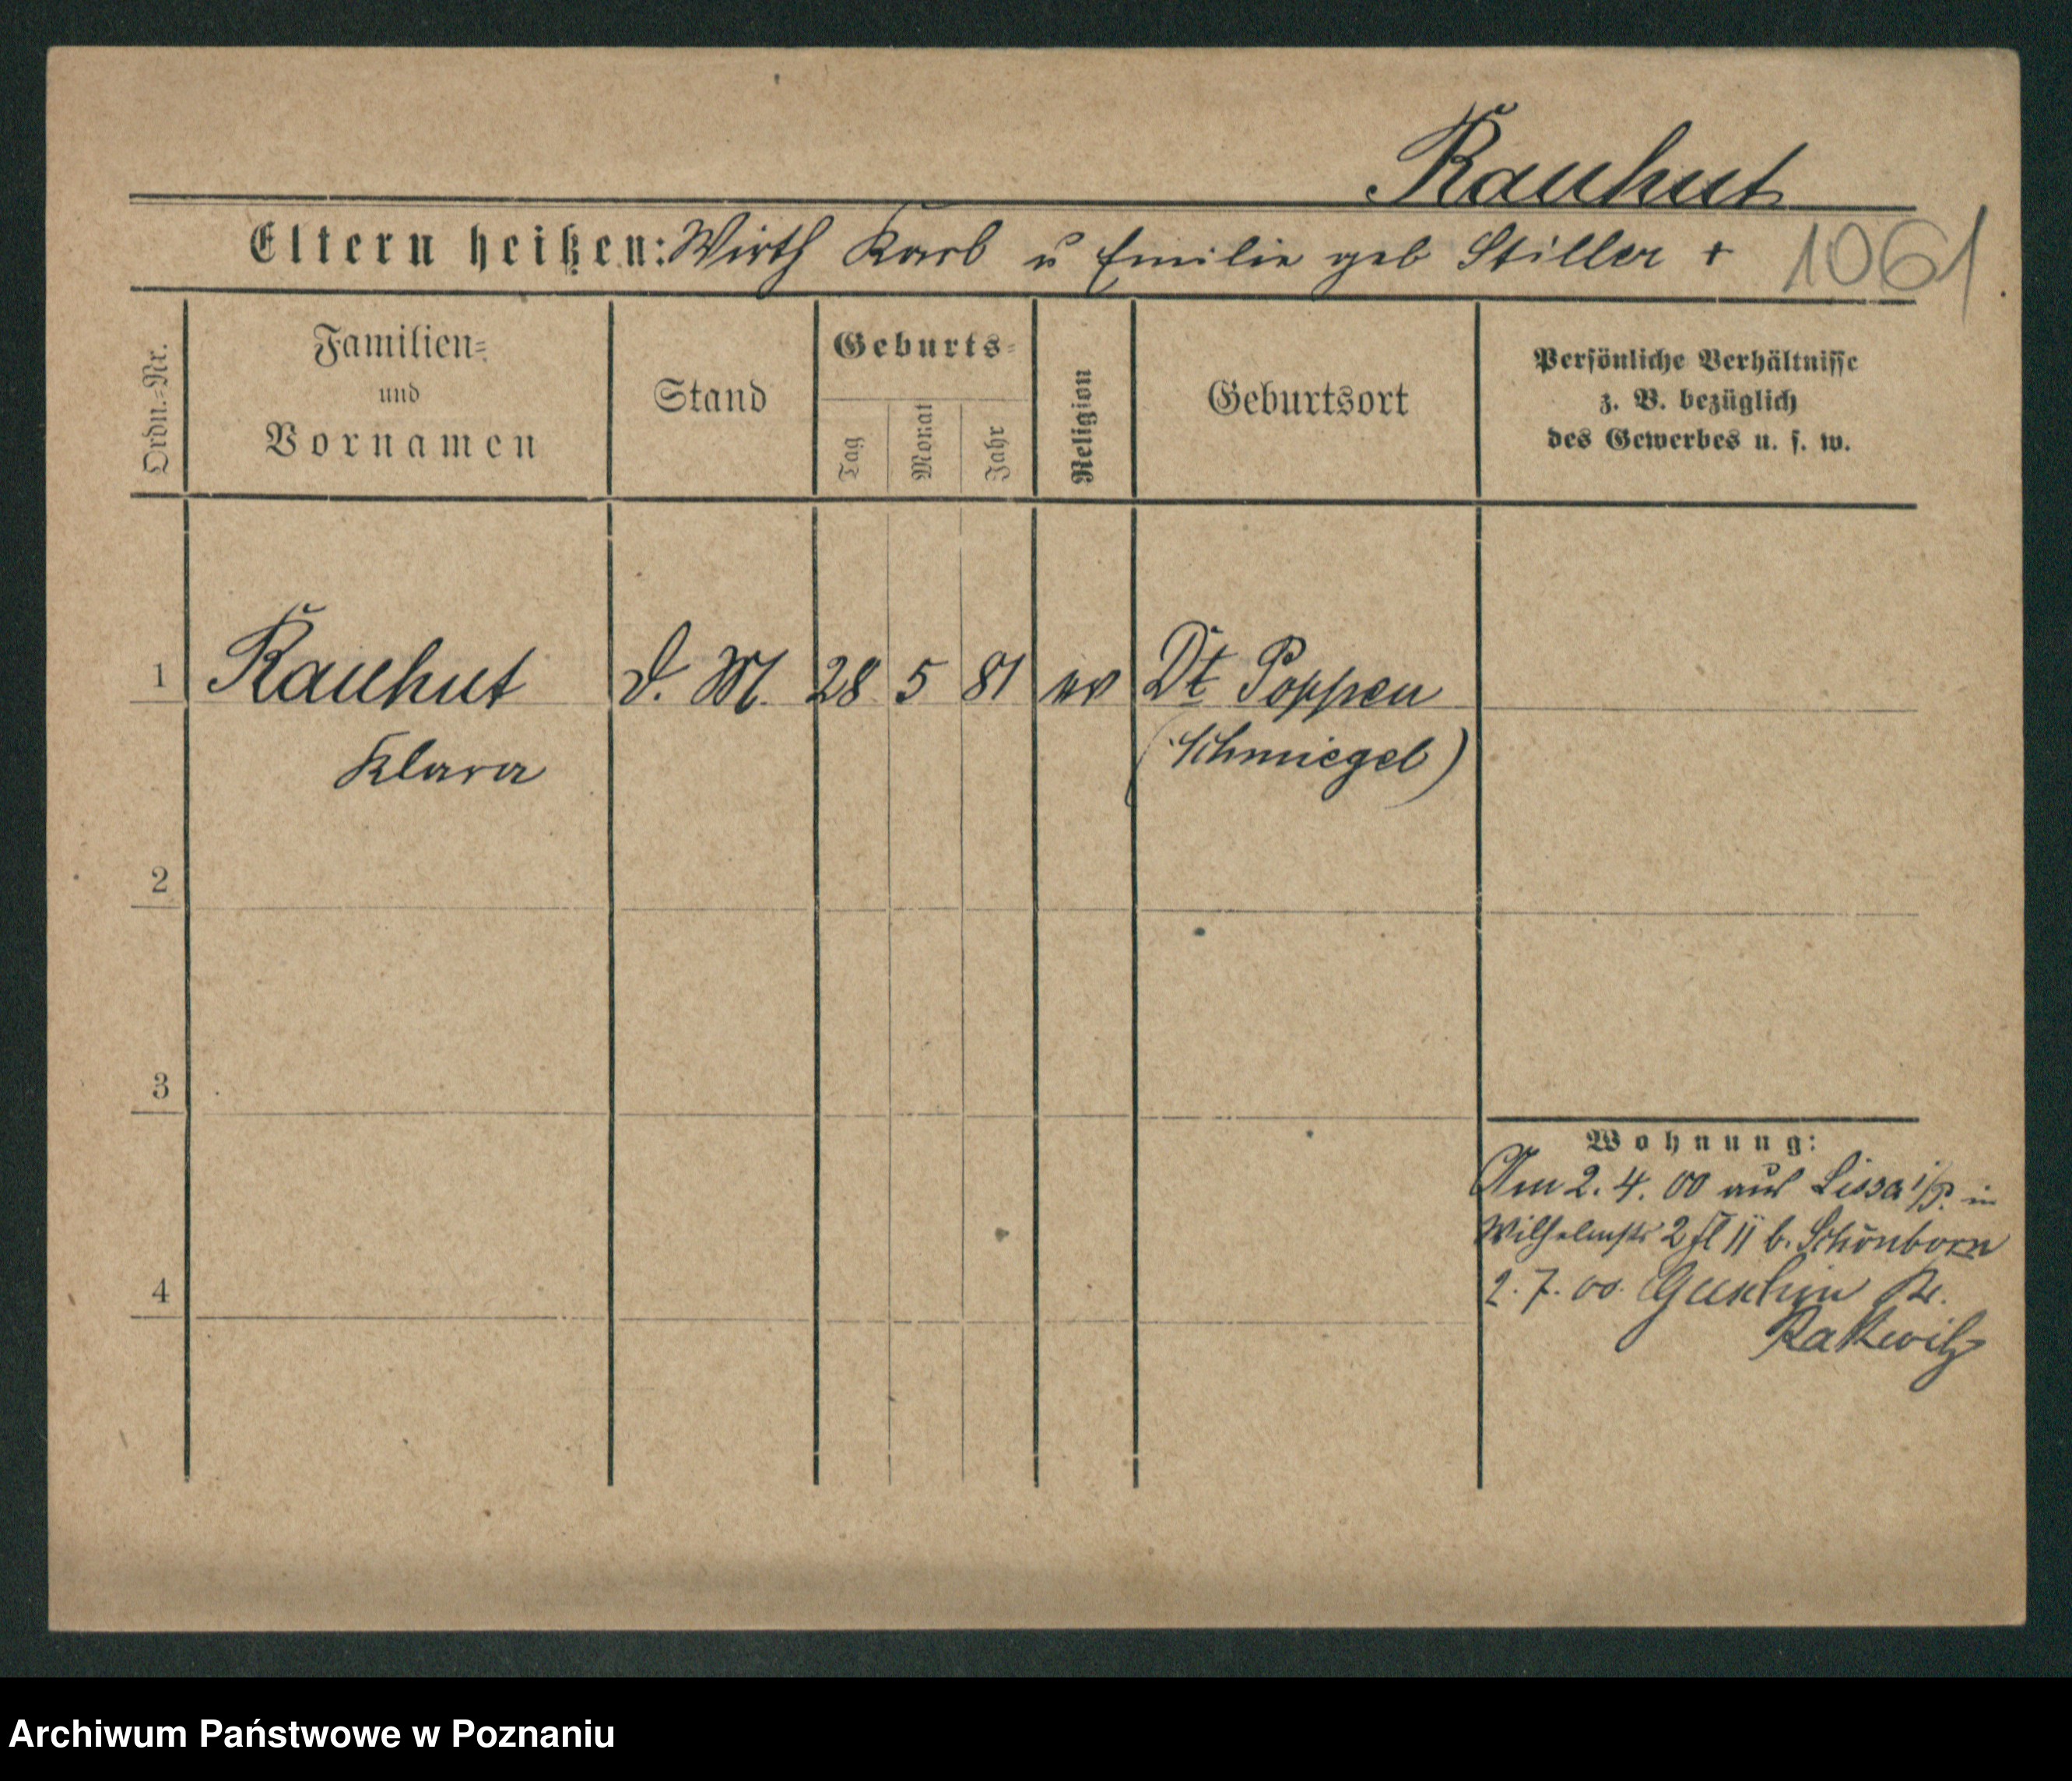 Rauhut
Eltern heißen: Wirth Karl u Emilie geb Stiller + 1061
Ordn.-Nr.
Familien-
und
Vornamen
Stand
Geburts-
Tag
Monat
Jahr
Religion
Geburtsort
Persönliche Verhältnisse
z. B. bezüglich
des Gewerbes u. s. w.
1 Rauhut D. M. 28 5 81 ev Dt Poppen
Klara (Schmiegel)
2
3
Wohnung:
Am 2. 4. 00 aus Lissa i/P. in
Wilhelmstr 2 II b. Schönborn
4 2. 7. 00. Kr.
Rakwitz
Archiwum Państwowe w Poznaniu